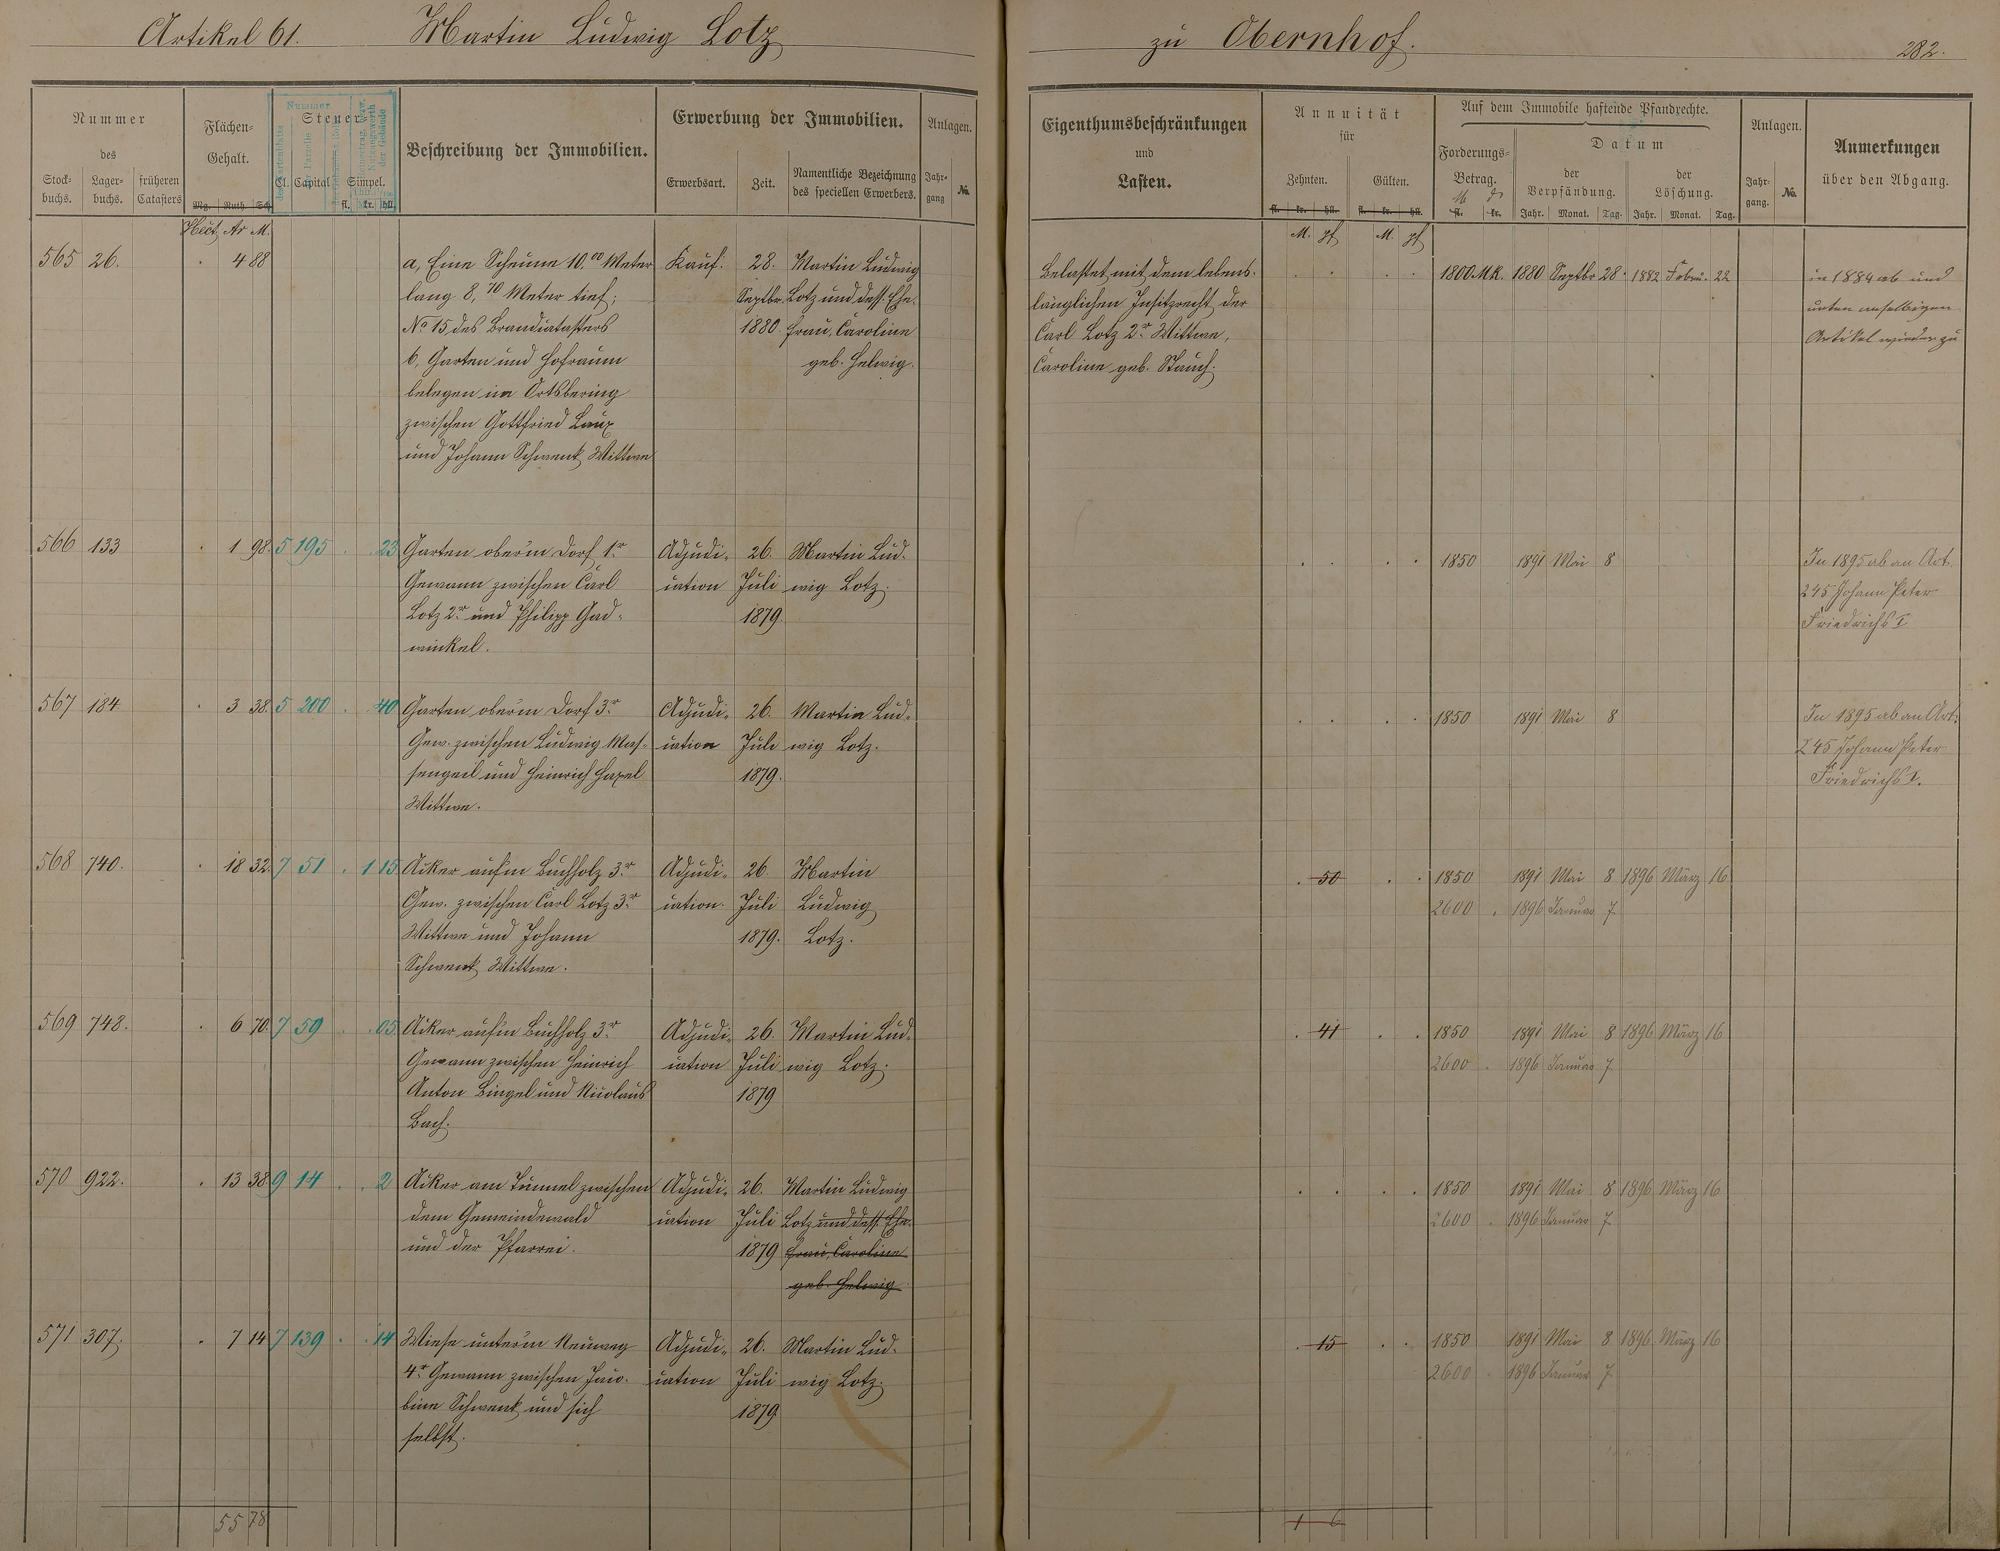 Artikel 61. Martin Ludwig Lotz
zu Obernhof. 282.
Nummer
des
Stock-
buchs.
Lager-
buchs.
früheren
Catasters
Flächen-
Gehalt.
Mg. Ruth. Sch.
Hect. Ar M.
Nummer
Steuer-
Cl. Capital Simpel.
fl. kr. hll.
Beschreibung der Immobilien.
Erwerbung der Immobilien.
Erwerbsart. Zeit.
Namentliche Bezeichnung
des speciellen Erwerbers.
Anlagen.
Jahr-
gang
No.
565 26. 4 88
a, Eine Scheune 10,00 Meter
lang 8,70 Meter tief;
No 15 des Brandcatasters
b, Garten und Hofraum
belegen im Ortsbering
zwischen Gottfried Laux
und Johann Schwenk Wittwe
Kauf.
28.
Septbr.
1880.
Martin Ludwig
Lotz und dess. Ehe-
frau, Caroline
geb. Helwig.
566 133 1 98. 5 195 23
Garten ober'm Dorf 1r
Gewann zwischen Carl
Lotz 2r und Philipp Gad-
winkel.
Adjudi-
cation
26.
Juli
1879
Martin Lud-
wig Lotz.
567 184 3 38. 5 200 40
Garten ober'm Dorf 3r
Gew. zwischen Ludwig Mas-
sengeil und Heinrich Hasel
Wittwe.
Adjudi-
cation
26.
Juli
1879.
Martin Lud-
wig Lotz.
568 740. 18 32. 7 51 1 15
Acker auf'm Buchholz 3r
Gew. zwischen Carl Lotz 3r
Wittwe und Johann
Schwenk Wittwe.
Adjudi-
cation.
26.
Juli
1879.
Martin
Ludwig
Lotz.
569 748. 6 70. 7 59 05
Acker auf'm Buchholz 3r
Gewann zwischen Heinrich
Anton Bingel und Nicolaus
Bach.
Adjudi-
cation
26.
Juli
1879
Martin Lud-
wig Lotz.
570 922. 13 38 9 14 2
Acker am Tunnel zwischen
dem Gemeindewald
und der Pfarrei.
Adjudi-
cation
26.
Juli
1879
Martin Ludwig
Lotz und dess. Ehe-
frau, Caroline
geb. Helwig
571 307. 7 14 7 139 14
Wiese unter'm Neuweg
4r Gewann zwischen Jaco-
bine Schwenk und sich
selbst.
Adjudi-
cation
26.
Juli
1879
Martin Lud-
wig Lotz.
55 78
Eigenthumsbeschränkungen
und
Lasten.
Annuität
für
Zehnten. Gülten.
fl. kr. hll. fl. kr. hll.
M. pf M. pf
Auf dem Immobile haftende Pfandrechte.
Forderungs-
Betrag.
fl. kr.
Datum
der
Verpfändung.
der
Löschung.
Jahr. Monat. Tag. Jahr. Monat. Tag.
Anlagen.
Jahr-
gang.
No.
Anmerkungen
über den Abgang.
Belastet mit dem lebens-
länglichen Insitzrecht der
Carl Lotz 2r Wittwe,
Caroline geb. Stauch.
1800 Mk. 1880 Septbr 28. 1882 Febru. 22
in 1884 ab und
unter anselbigen
Artikel wieder zu
1850 1891 Mai 8
In 1895 ab an Art.
245 Johann Peter
Friedrichs I
1850 1891 Mai 8
In 1895 ab an Art.
245 Johann Peter
Friedrichs I.
50 1850 1891 Mai 8 1896 März 16
2600 1896 Januar 7
41 1850 1891 Mai 8 1896 März 16
2600 1896 Januar 7
1850 1891 Mai 8 1896 März 16
2600 1896 Januar 7
15 1850 1891 Mai 8 1896 März 16
2600 1896 Januar 7
1 6